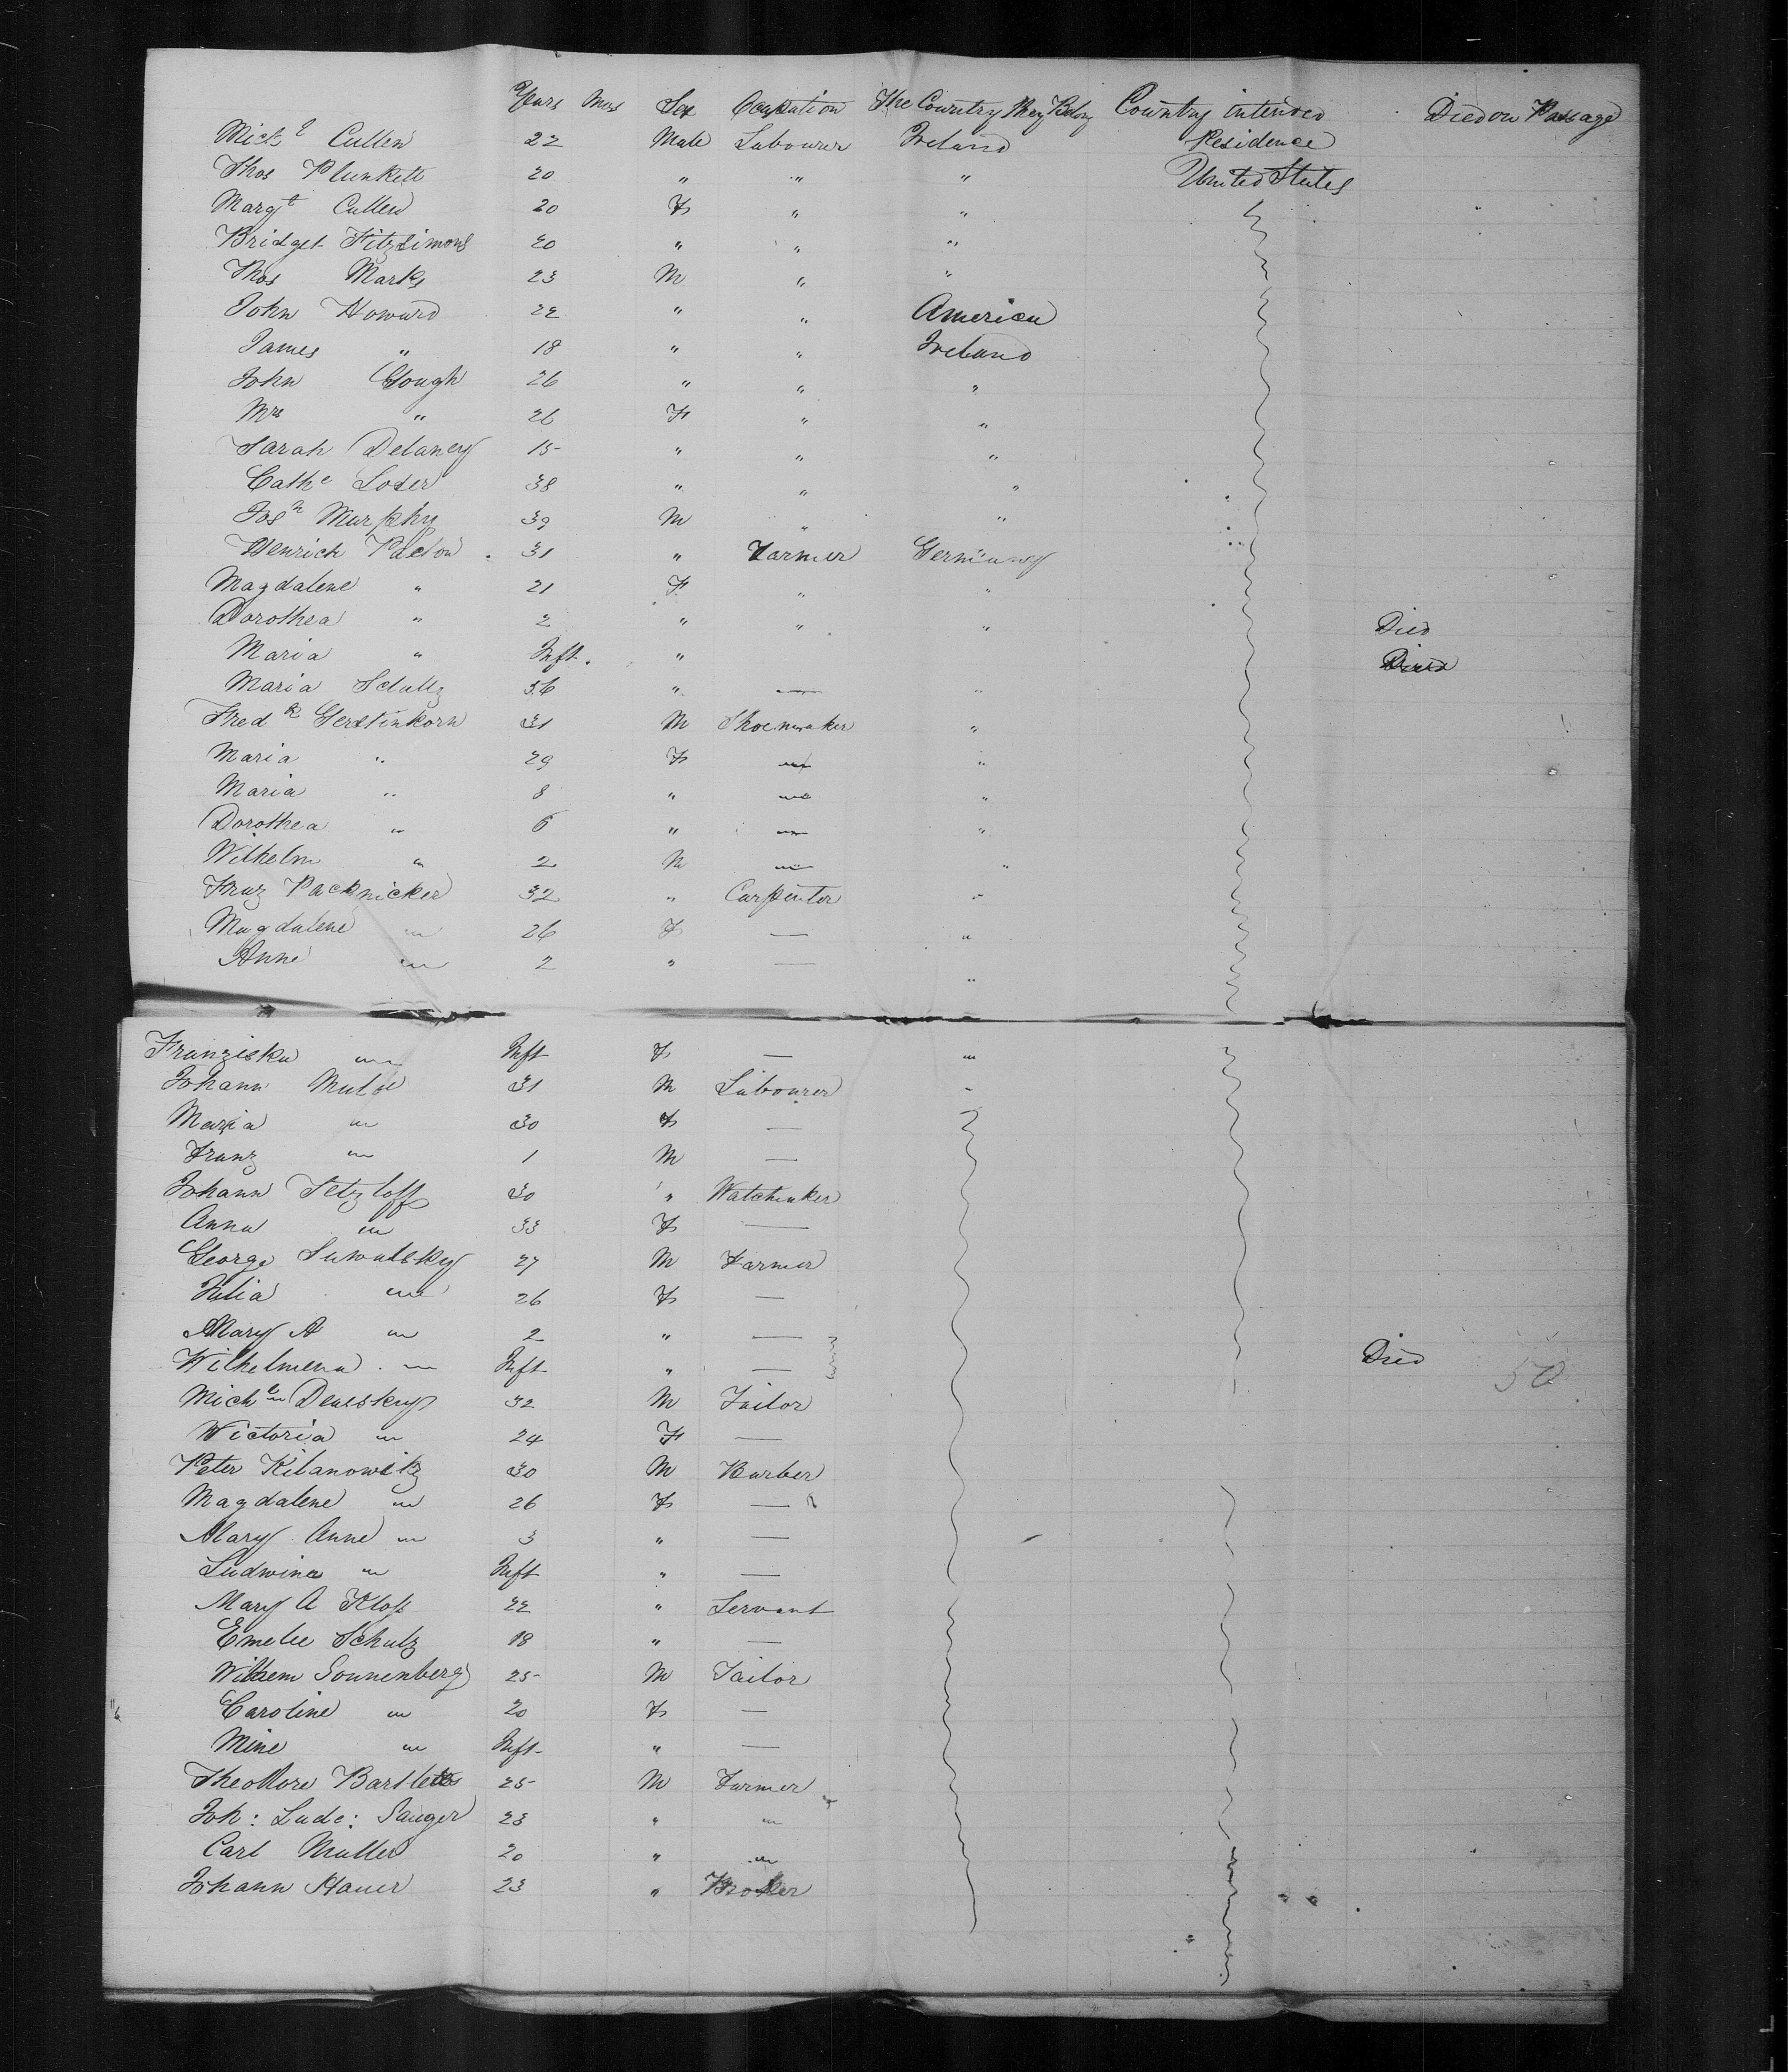 Years Mos Sex Occupation The Country They Belong Country intended Died on Passage
Mich^l Cullen 22 Male Labourer Ireland Residence
Thos Plunkett 20 " " " United States
Marg^t Cullen 20 F " "
Bridget Fitzsimons 20 " " "
Thos Marks 23 M " "
John Howard 22 " " America
James " 18 " " Ireland
John Gough 26 " " "
Mrs " 26 F " "
Sarah Delaney 15 " " "
Cath^e 38 " " "
Jos^h Murphy 39 M " "
Henrich 31 " Farmer Germany
Magdalene " 21 F " "
Dorothea " 2 " " " Died
Maria " Inft. " Died
Maria Schultz 36 " — "
Fred^k Gerstinkorn 31 M Shoemaker "
Maria " 29 F — "
Maria " 8 " — "
Dorothea " 6 " — "
Wilhelm " 2 M — "
Franz Packnicker 32 " Carpenter "
Magdalene " 26 F — "
Anne " 2 " — "
Franziska " Inft F — "
Johann 31 M Labourer "
Maria " 30 F —
Franz " 1 M —
Johann Tetzloff 30 " Watchmaker
Anna " 33 F —
George Suwalsky 27 M Farmer
Julia " 26 F —
Mary A " 2 " —
Wilhelmena " Inft " — Died 50
Mich^l 32 M Tailor
Victoria " 24 F —
Peter Kilanowitz 30 M Barber
Magdalene " 26 F —
Mary Anne " 3 " —
Ludwina " Inft " —
Mary A Kloss 22 " Servant
Emelie Schulz 18 " —
Wilhem Sonnenberg 25 M Tailor
Caroline " 20 F —
Mine " Inft " —
Theodore Bartlett 25 M Farmer
Joh: Lude: Sauger 23 " "
Carl Muller 20 " "
Johann Hauer 23 "